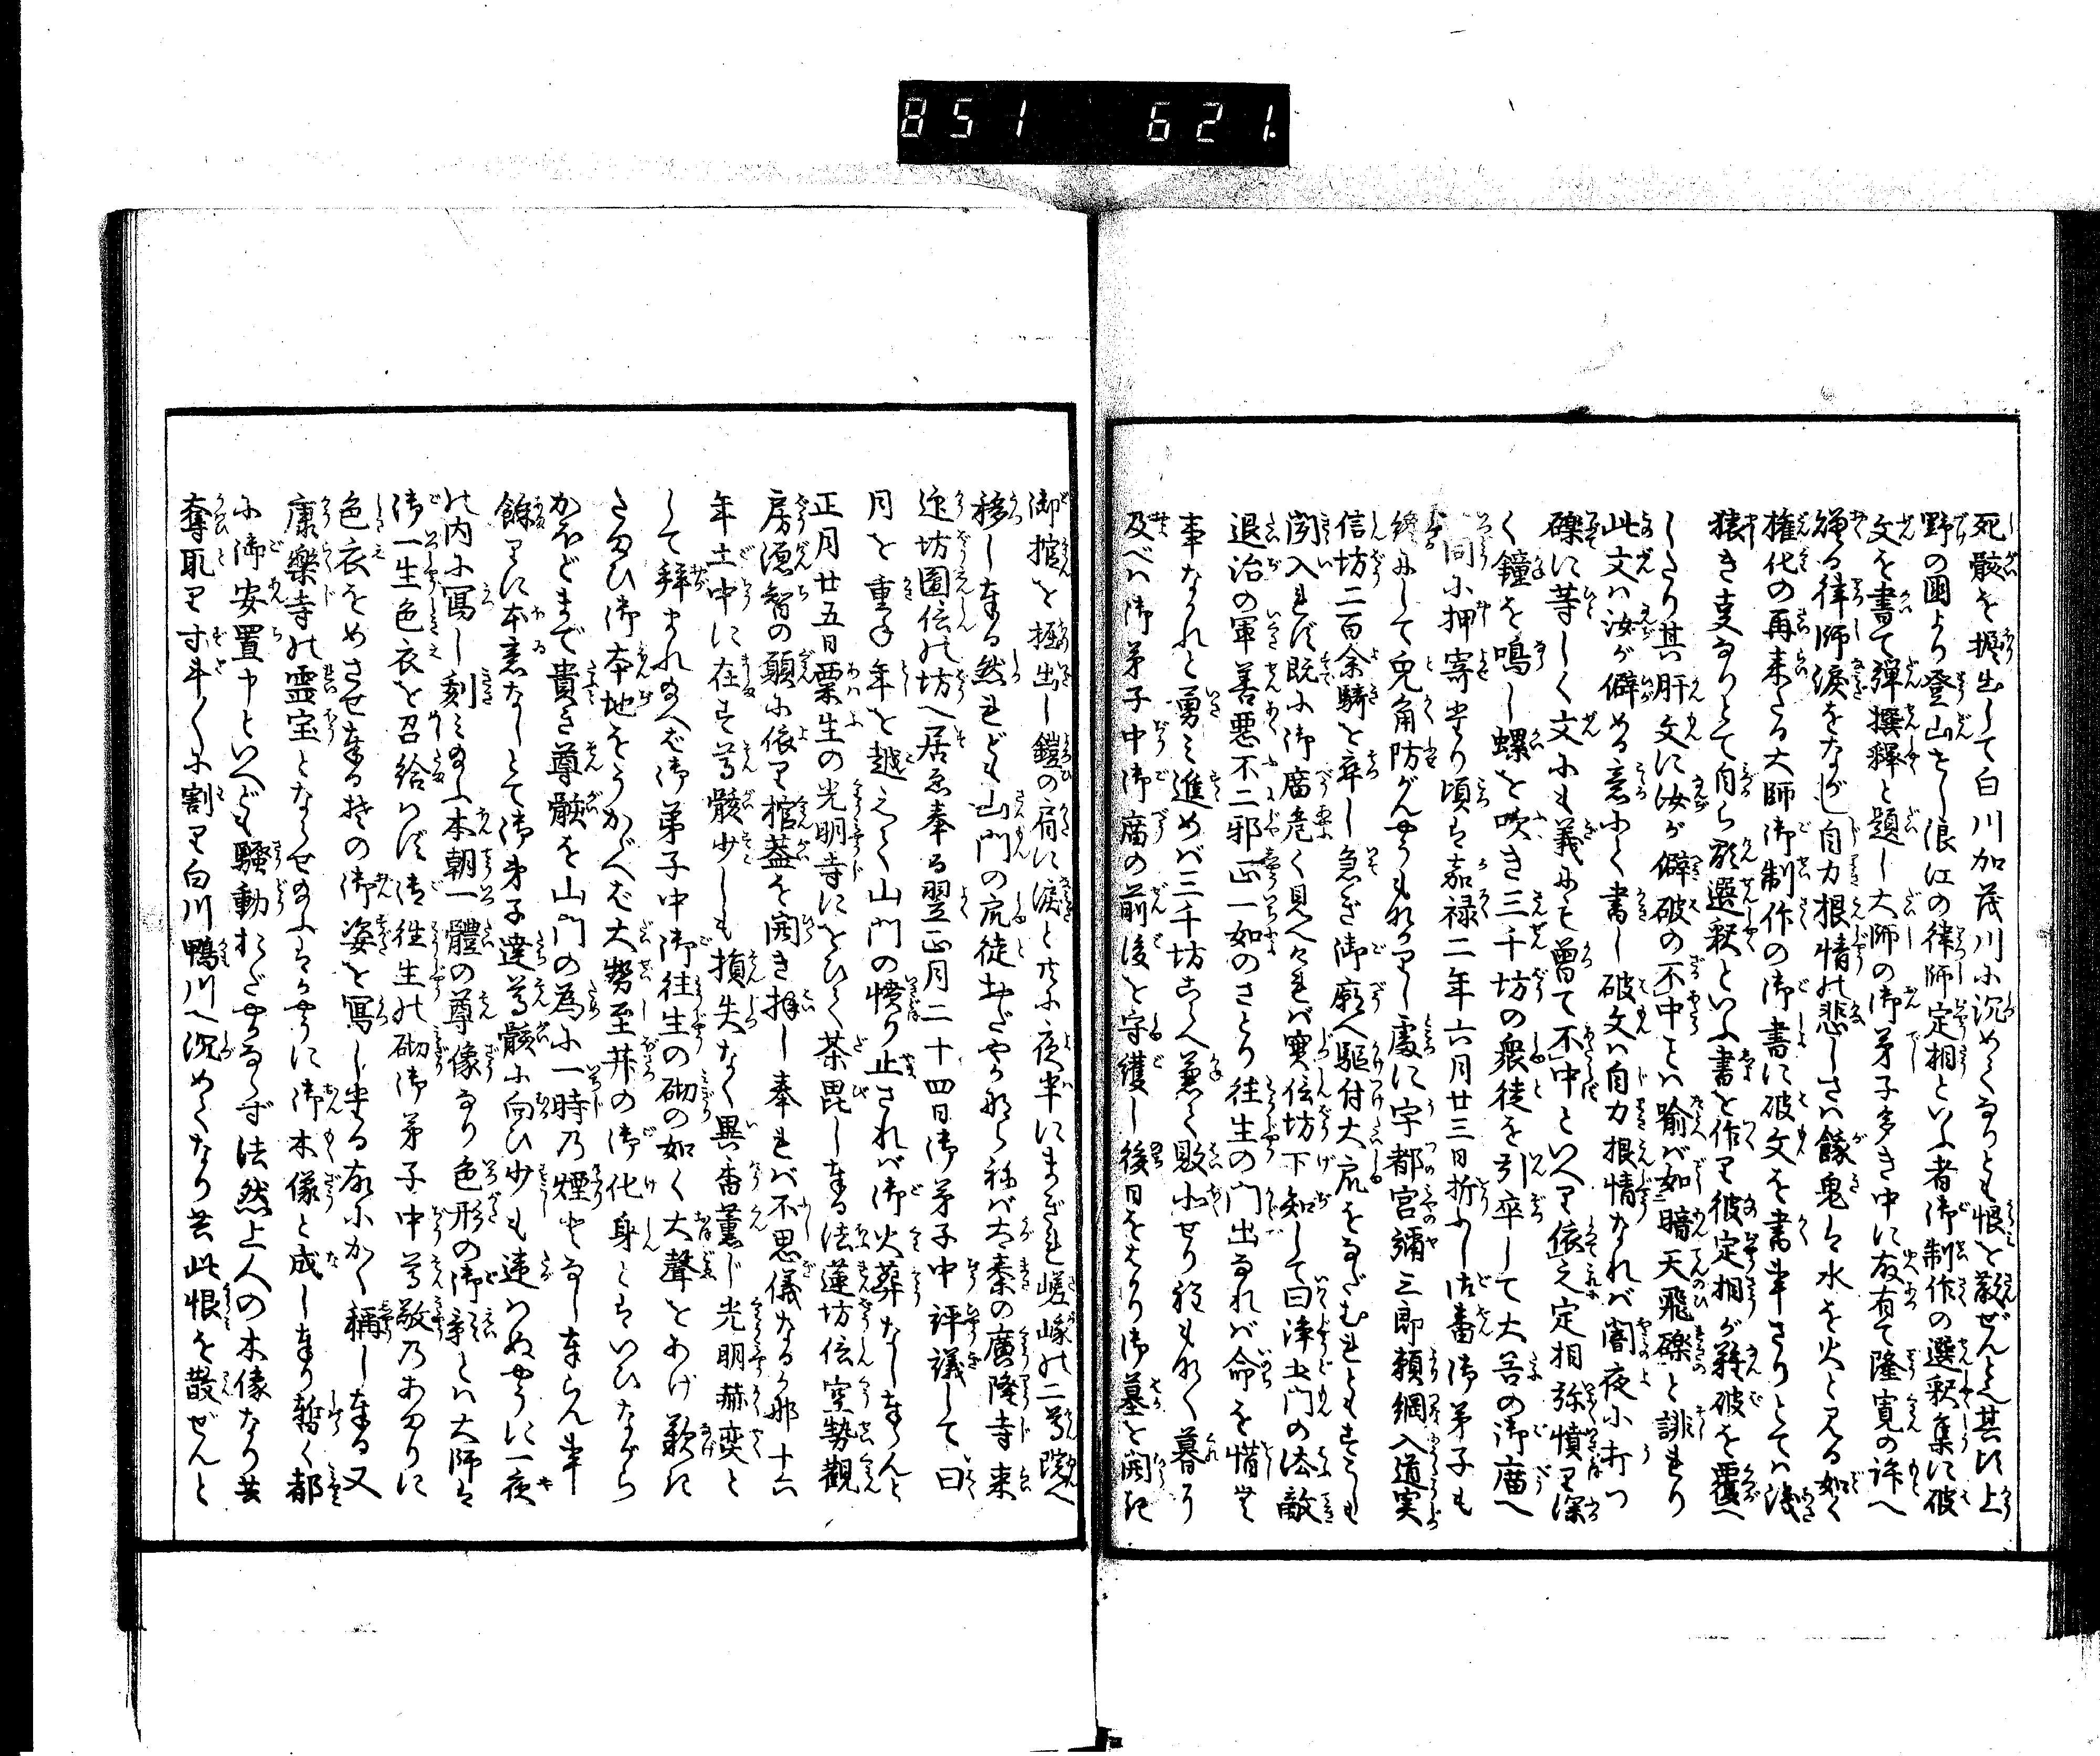 851 621.
死骸を掘出して白川加茂川に沈めくるとも恨を散ぜんと其比上
野の国より登山せし浪江の律師定相といふ者御制作の選釈集に破
文を書て弾撰釋と題し大師の御弟子多き中に故有て隆寛の許へ
律師涙をながし自力根情の悲しさハ餓鬼は水を火と見る如く
権化の再来たる大師御制作の御書に破文を書事さりとてハ浅
猿き支なりとて自ら顕選釈といふ書を作り彼定相が難破を覆へ
したり其肝文に汝が僻破の不中とハ喩バ如暗天飛礫と誹れり
此文ハ汝が僻める意にて書し破文ハ自力根情なれバ闇夜に打つ
礫に等しく文にも義にも曽て不中といへり依之定相弥憤り深
く鐘を鳴し螺を吹き三千坊の衆徒を引卒して大谷の御廟へ
同に押寄たり頃は嘉禄二年六月廿三日折ふし御番御弟子も
にして兎角防がんやうもなかりし處に宇都宮彌三郎頼綱入道実
信坊二百余騎を卒し急ぎ御廟へ駆付大衆をなだむれともすこしも
聞入れず既に御廟危く見へければ實信坊下知して曰浄土門の法敵
退治の軍善悪不二邪正一如のさとり往生の門出なれバ命を惜
事なかれと勇ミ進めバ三千坊こらへ兼て敗北せり程もなく暮に
及べハ御弟子中御廟の前後を守護し後日をはかり御墓を開き
御棺を掘出し鎧の肩に涙と共に夜半にまぎれ嵯峨の二尊院へ
移し奉る然れども山門の衆徒おだやかならねば太秦の廣隆寺来
迎坊圓信の坊へ居ゑ奉る翌正月二十四日御弟子中評議して曰
月を重ね年を越えて山門の憤り止ざれバ御火葬なし奉らんと
正月廿五日粟生の光明寺にをひて茶毘し奉る法蓮坊信空勢觀
房源智の願に依り棺蓋を開き拝し奉れバ不思儀なるかな十六
年土中に在す尊骸少しも損失なく異香薫じ光明赫奕と
して拝まれ給へば御弟子中御往生の砌の如く大聲をあげ歎き
さけひ御本地をうかがへば大勢至菩薩の御化身とはいひながら
かほどまで貴き尊骸を山門の為に一時の煙となし奉らん事
餘りに本意なしとて御弟子達尊骸に向ひ少も違ハぬやうに一夜
の内に寫し刻ミ給ふ本朝一體の尊像なり色形の御影とハ大師は
御一生色衣を召給ハず御往生の砌御弟子中尊敬のあまりに
色衣をめさせ奉る其の御姿を寫し奉る故にかく稱し奉る又
康樂寺の霊宝とならせ給ふはかやうに御木像と成し奉り暫く都
に御安置申といへども騒動おだやかならず法然上人の木像なり共
奪取り寸々に割り白川鴨川へ沈めてなり共此恨を散ぜんと